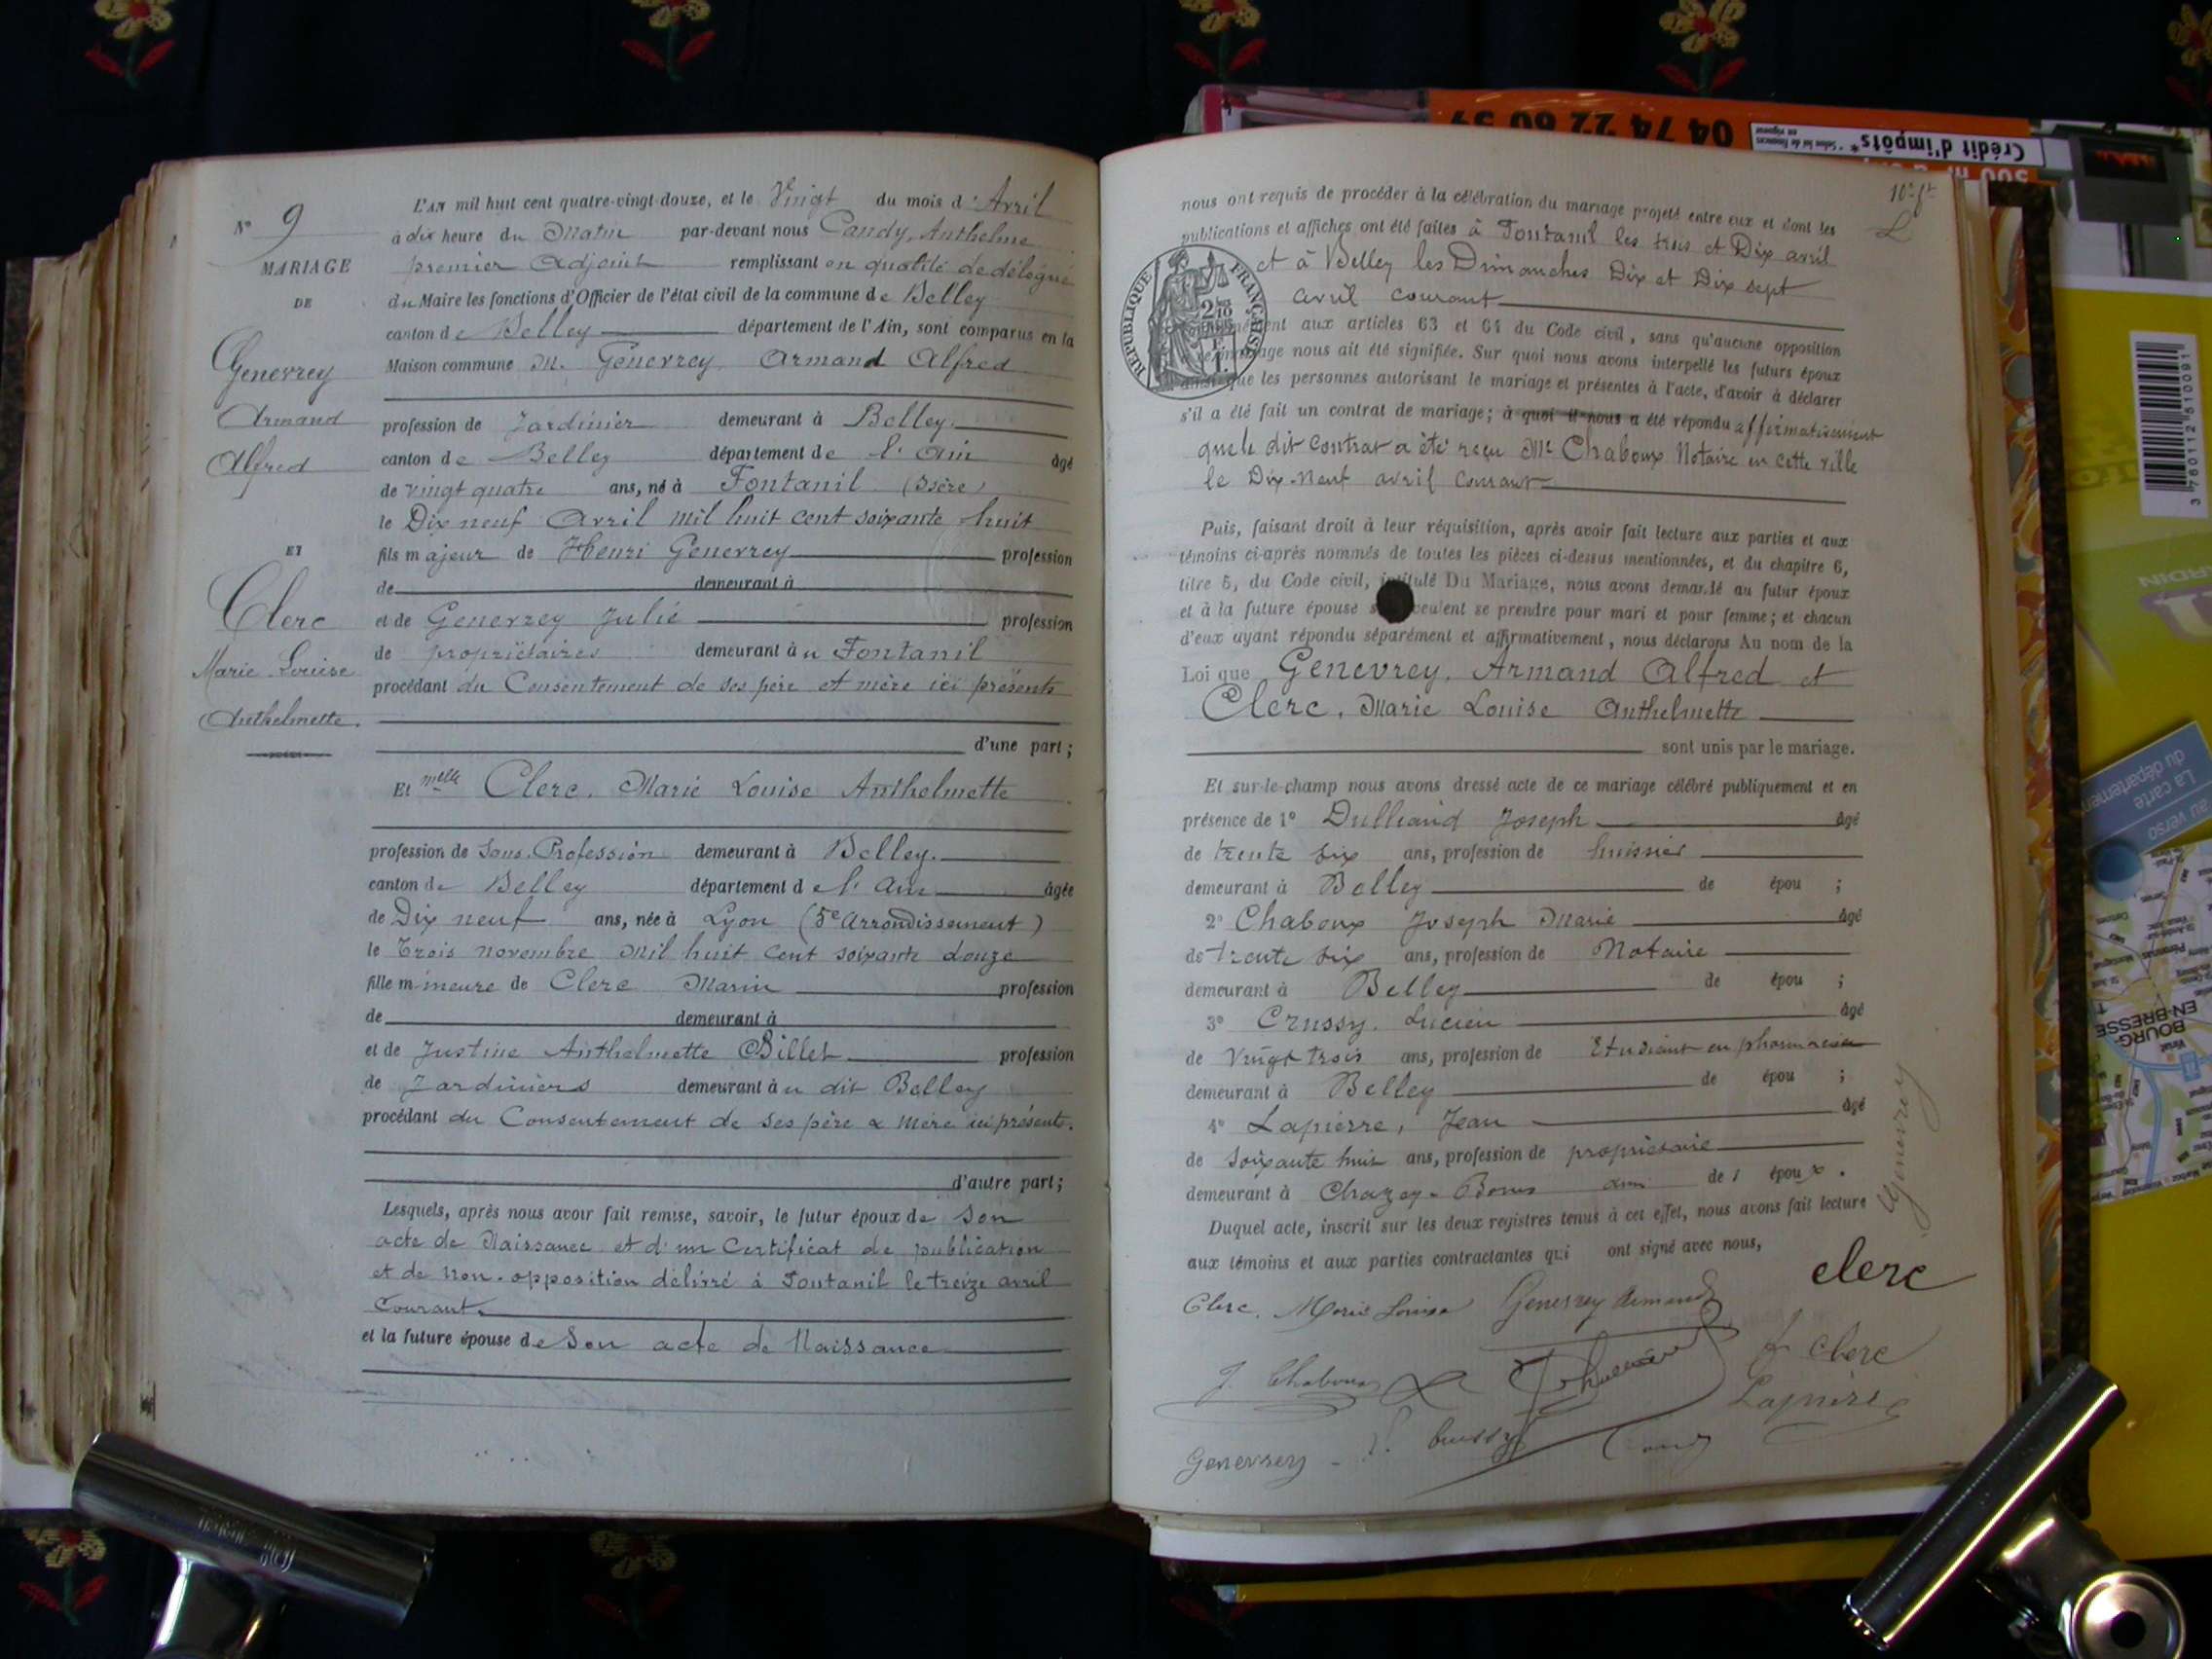 N° 9
MARIAGE
DE
Genevrey
Armand
Alfred
ET
Clerc
Marie Louise
Anthelmette.
L'AN mil huit cent quatre-vingt douze, et le Vingt du mois d'Avril
à dix heure du Matin par-devant nous Candy, Anthelme
premier Adjoint remplissant en qualité de délégué
du Maire les fonctions d'Officier de l'état civil de la commune de Belley
canton de Belley département de l'Ain, sont comparus en la
Maison commune M. Genevrey Armand Alfred
profession de Jardinier demeurant à Belley
canton de Belley département de l'Ain âgé
de vingt quatre ans, né à Fontanil (Isère)
le Dix neuf Avril mil huit cent soixante huit
fils majeur de Henri Genevrey profession
de demeurant à
et de Genevrey Julie profession
de propriétaires demeurant à u Fontanil
procédant du Consentement de ses père et mère ici présents
d'une part;
Et Melle Clerc, Marie Louise Anthelmette
profession de Sans Profession demeurant à Belley.
canton de Belley département de l'Ain âgée
de Dix neuf ans, née à Lyon (5e Arrondissement)
le Trois novembre mil huit cent soixante douze
fille mineure de Clerc Marin profession
de demeurant à
et de Justine Anthelmette Billet profession
de Jardiniers demeurant à u dit Belley
procédant du Consentement de ses père & mère ici présents.
d'autre part;
Lesquels, après nous avoir fait remise, savoir, le futur époux de son
acte de Naissance et d'un Certificat de publication
et de non-opposition délivré à Fontanil le treize avril
Courant.
et la future épouse de Son acte de Naissance
nous ont requis de procéder à la célébration du mariage projeté entre eux et dont les
publications et affiches ont été faites à Fontanil les trois et Dix avril
et à Belley les Dimanches Dix et Dix sept
avril courant
RÉPUBLIQUE FRANÇAISE
aux articles 63 et 64 du Code civil, sans qu'aucune opposition
nous ait été signifiée. Sur quoi nous avons interpellé les futurs époux
que les personnes autorisant le mariage et présentes à l'acte, d'avoir à déclarer
s'il a été fait un contrat de mariage; à quoi il nous a été répondu affirmativement
que le dit Contrat a été reçu Me Chaboux Notaire en cette ville
le Dix-Neuf avril Courant
Puis, faisant droit à leur réquisition, après avoir fait lecture aux parties et aux
témoins ci-après nommés de toutes les pièces ci-dessus mentionnées, et du chapitre 6,
titre 5, du Code civil, intitulé Du Mariage, nous avons demandé au futur époux
et à la future épouse s veulent se prendre pour mari et pour femme; et chacun
d'eux ayant répondu séparément et affirmativement, nous déclarons Au nom de la
Loi que Genevrey, Armand Alfred et
Clerc, Marie Louise Anthelmette
sont unis par le mariage.
Et sur-le-champ nous avons dressé acte de ce mariage célébré publiquement et en
présence de 1° Dulliand Joseph âgé
de trente six ans, profession de huissier
demeurant à Belley de épou ;
2° Chaboux Joseph Marie âgé
de trente six ans, profession de Notaire
demeurant à Belley de épou ;
3° Crussy, Lucien âgé
de Vingt trois ans, profession de Etudiant en pharmacie
demeurant à Belley de épou ;
4° Lapierre, Jean âgé
de soixante huit ans, profession de propriétaire
demeurant à Chazey-Bons ami de l épou x.
Duquel acte, inscrit sur les deux registres tenus à cet effet, nous avons fait lecture
aux témoins et aux parties contractantes qui ont signé avec nous,
clerc
Clerc, Marie Louise Genevrey Armand
J. Chaboux
clerc
Lapierre
Genevrey
Crussy
Candy
Genevrey
04 74 22 60 59
Crédit d'impôts*
3 760112 510091
La carte
du département
au verso
BOURG-
EN-BRESSE